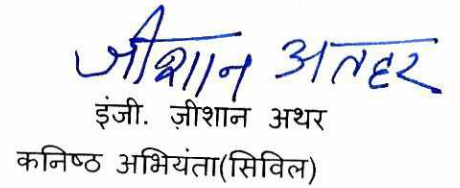 जीशान अतहर
इंजी. ज़ीशान अथर
कनिष्ठ अभियंता(सिविल)